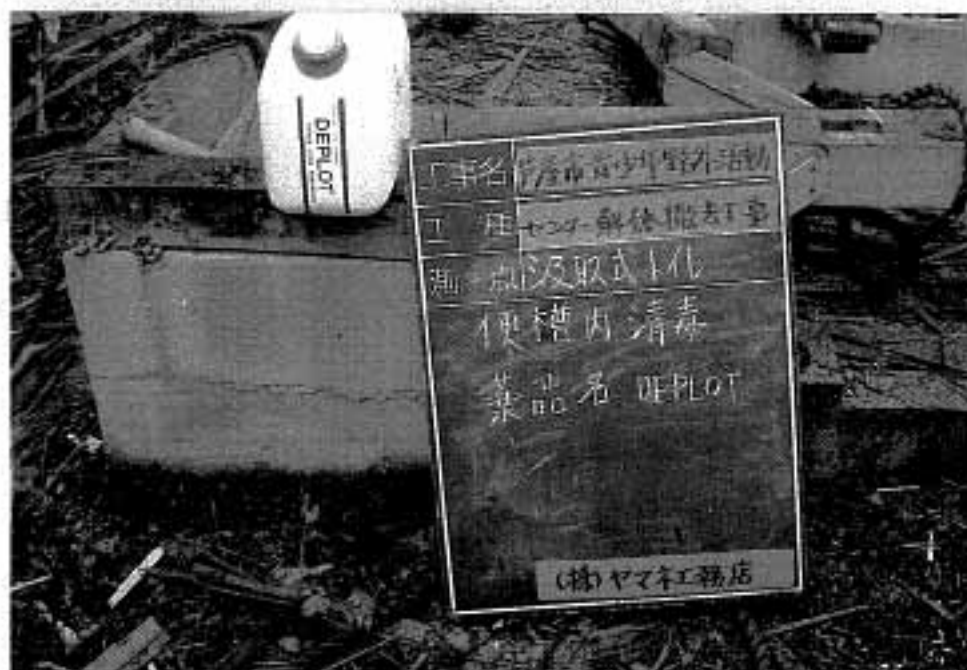 DEPLOT
工事名 芦屋市青少年野外活動
工種 センター解体撤去工事
測点 汲取式トイレ
便槽内消毒
薬品名 DEPLOT
(株)ヤマネ工務店